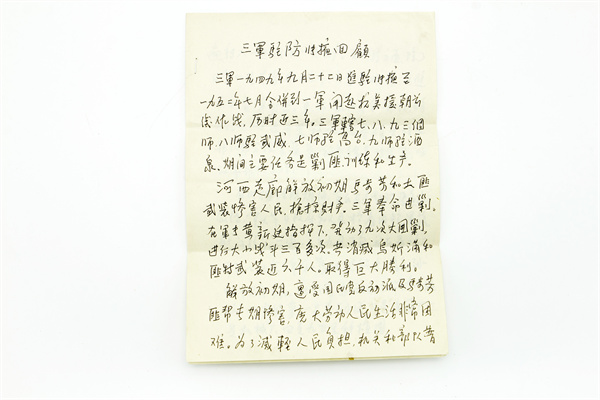 三軍駐防张掖回顧
三軍一九四九年九月二十二日進駐张掖至
一九五二年七月合併到一軍開赴抗美援朝前
线作战，历时近三年。三軍轄七、八、九三個
师，八师駐武威，七师駐高台，九师駐酒
泉。期间主要任务是剿匪、训练和生产。
河西走廊解放初期馬步芳和土匪
武装惨害人民，搶掠财产。三軍奉命进剿。
在軍长黄新廷指挥下，发动了九次大圍剿，
进行大小战斗三百多次。共消滅烏斯滿和
匪特武装近六千人。取得巨大勝利。
解放初期，遭受国民党反动派及馬步芳
匪帮长期惨害，廣大劳动人民生活非常困
难。为了减輕人民負担，机关和部队普